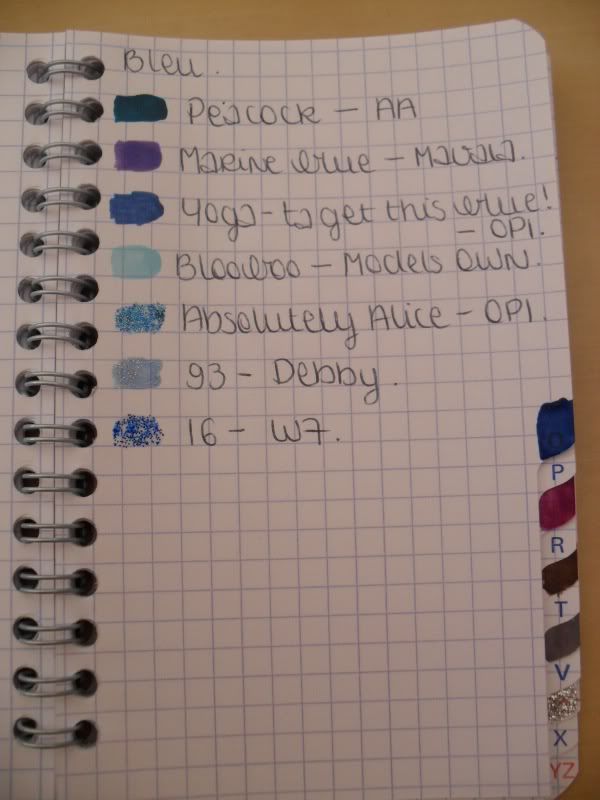 Bleu.
Peacock - AA
Marine blue - Mavala.
Yoga-ta get this blue!
- OPI.
Bloo Boo - Models OWN.
Absolutely Alice - OPI.
93 - Debby.
16 - W7.
P
R
T
V
X
YZ